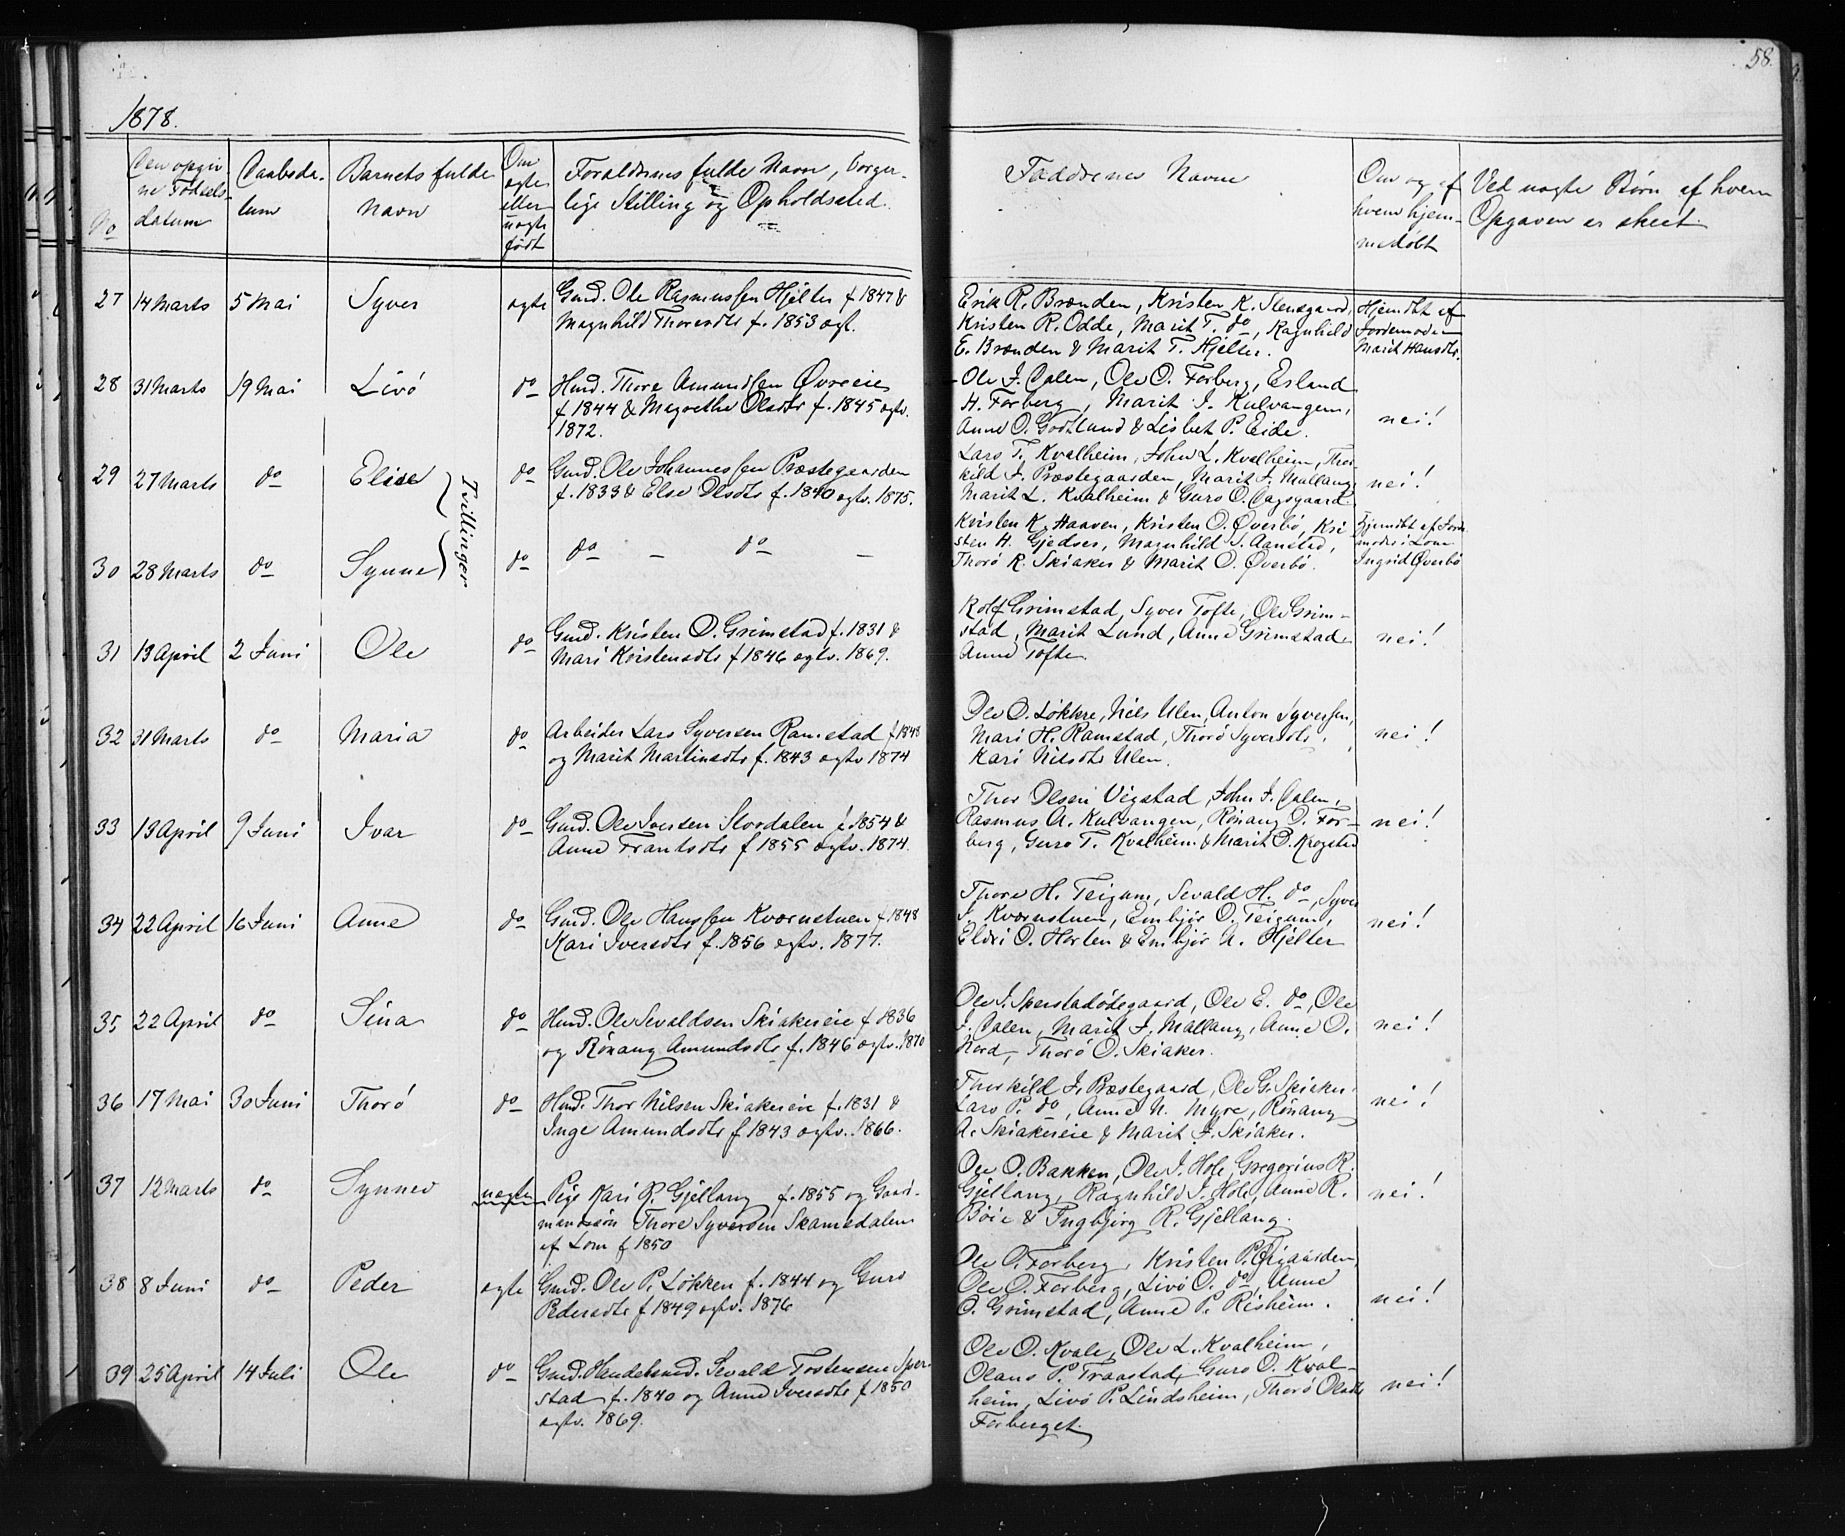 58.
1878.
No
Den opgiv-
ne Fødsels-
datum
Daabsda-
tum
Barnets fulde
Navn
Om
ægte
eller
uægte
født
Forældrenes fulde Navn, borger-
lige Stilling og Opholdssted.
Faddernes Navne
Om og af
hvem hjem-
medøbt
Ved uægte Børn af hvem
Opgaven er skeet
27 14 Marts 5 Mai Syver ægte
Gmd. Ole Rasmussen Hjelter f 1847 &
Magnhild Thoresdtr f. 1853 ægt.
Erik R. Brænden, Kristen K. Stensgaard,
Kristen R. Odde, Marit T. do, Ragnhild
E. Brænden & Marit T. Hjelter.
Hjemdbt af
Jordemoder
Marit Hansdtr.
28 31 Marts 19 Mai Livö do
Hmd. Thore Amundsen Øvreeie
f 1844 & Magrethe Olsdtr f. 1845 ægtv.
1872.
Ole J. Dalen, Ole O. Forberg, Erland
H. Forberg, Marit J. Kulvangen,
Anne O. Godtlund & Lisbet P. Eide.
nei!
29 27 Marts do Elise do
Tvillinger
Gmd. Ole Johannessen Præstegaarden
f. 1833 & Else Olsdtr f. 1840 ægtv. 1875.
Lars T. Kvalheim, John L. Kvalheim, Thor-
kild J. Præstegaarden, Marit J. Mallang,
Marit L. Kvalheim & Guro O. Dagsgaard.
nei!
30 28 Marts do Synne do
do — do —
Kristen K. Haaven, Kristen O. Øverbö, Kri-
sten H. Gjedser, Magnhild S. Aanstad,
Thorö R. Skiaker & Marit O. Øverbö.
Hjemdbt af Jorde
moder i Lom
Ingrid Øverbö
31 13 April 2 Juni Ole do
Gmd. Kristen O. Grimstad f. 1831 &
Mari Kristensdtr f 1846 ægtv. 1869.
Rolf Grimstad, Syver Tofte, Ole Grim-
stad, Marit Lund, Anne Grimstad
Anne Tofte.
nei!
32 31 Marts do Maria do
Arbeider Lars Syversen Ramstad f 1848
og Marit Martinsdtr f. 1843 ægtv 1874
Ole O. Løkkre, Nils Ulen, Anton Syversen,
Mari H. Ramstad, Thorö Syversdtr,
Kari Nilsdtr Ulen.
nei!
33 13 April 9 Juni Ivar do
Gmd. Ole Iversen Stordalen f 1854 &
Anne Frantsdtr f 1855 ægtv. 1874.
Thor Olsen Vigstad, John J. Dalen,
Rasmus A. Kulvangen, Rönaug O. For-
berg, Guro T. Kvalheim & Marit O. Krogstad
nei!
34 22 April 16 Juni Anne do
Gmd. Ole Hanssen Kværnstuen f 1848
Kari Iversdtr f. 1856 ægtv. 1877.
Thore H. Teigum, Sevald H. do, Syver
J. Kværnstuen, Embjör O. Teigum,
Eldri O. Horten & Embjör A. Hjelter
nei!
35 22 April do Sina do
Hmd. Ole Sevaldsen Skiakereie f 1836
og Rönaug Amundsdtr f. 1846 ægtv. 1870
Ole J. Sperstadödegaard, Ole E. do, Ole
J. Dalen, Marit J. Mallang, Anne O.
Nord, Thorö O. Skiaker.
nei!
36 17 Mai 30 Juni Thorö do
Hmd. Thor Nilsen Skiakereie f. 1831 &
Inge Amundsdtr f 1843 ægtv. 1866.
Thorkild J. Præstegaard, Ole G. Skiaker
Lars P. do, Anne N. Myre, Rönaug
A. Skiakereie & Marit J. Skiaker.
nei!
37 12 Marts do Synnev uægte
Pige Kari R. Gjellang f. 1855 og Gaard-
mandssön Thore Syversen Skamsdalen
af Lom f 1850
Ole O. Bakken, Ole J. Hole, Gregorius R.
Gjellang, Ragnhild J. Hole, Anne R.
Böie & Ingbjörg R. Gjellang.
nei!
38 8 Juni do Peder ægte
Gmd. Ole P. Løkken f. 1844 og Guro
Pedersdtr f 1849 ægtv. 1876
Ole O. Forberg, Kristen P. Øigaarden
Ole O. Forberg, Livö O. do, Anne
O. Grimstad, Anne P. Risheim.
nei!
39 25 April 14 Juli Ole do
Gmd. Handelsmd. Sevald Tostensen Sper-
stad f. 1840 og Anne Iversdtr f 1850
ægtv. 1869.
Ole O. Kvale, Ole L. Kvalheim,
Olaus P. Fraastad, Guro O. Kval-
heim, Livö P. Lindsheim, Thorö Olsdtr
Forberget.
nei!